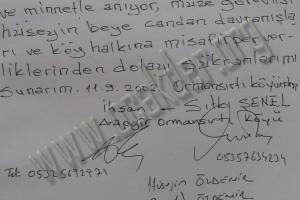 ve minnetle anıyor, müze görevlisi
hüseyin beye candan davranışla
rı ve köy halkına misafirperver-
liklerinden dolayı şükranlarımı
sunarım. 11.9.2002 Ormansırtı köyünden
İhsan - Sıtkı ŞENEL
Arapgir Ormansırtı Köyü
Tel: 05325692971
05357634234
Hüseyin ÖZDEMİR
ÖZDEMİR